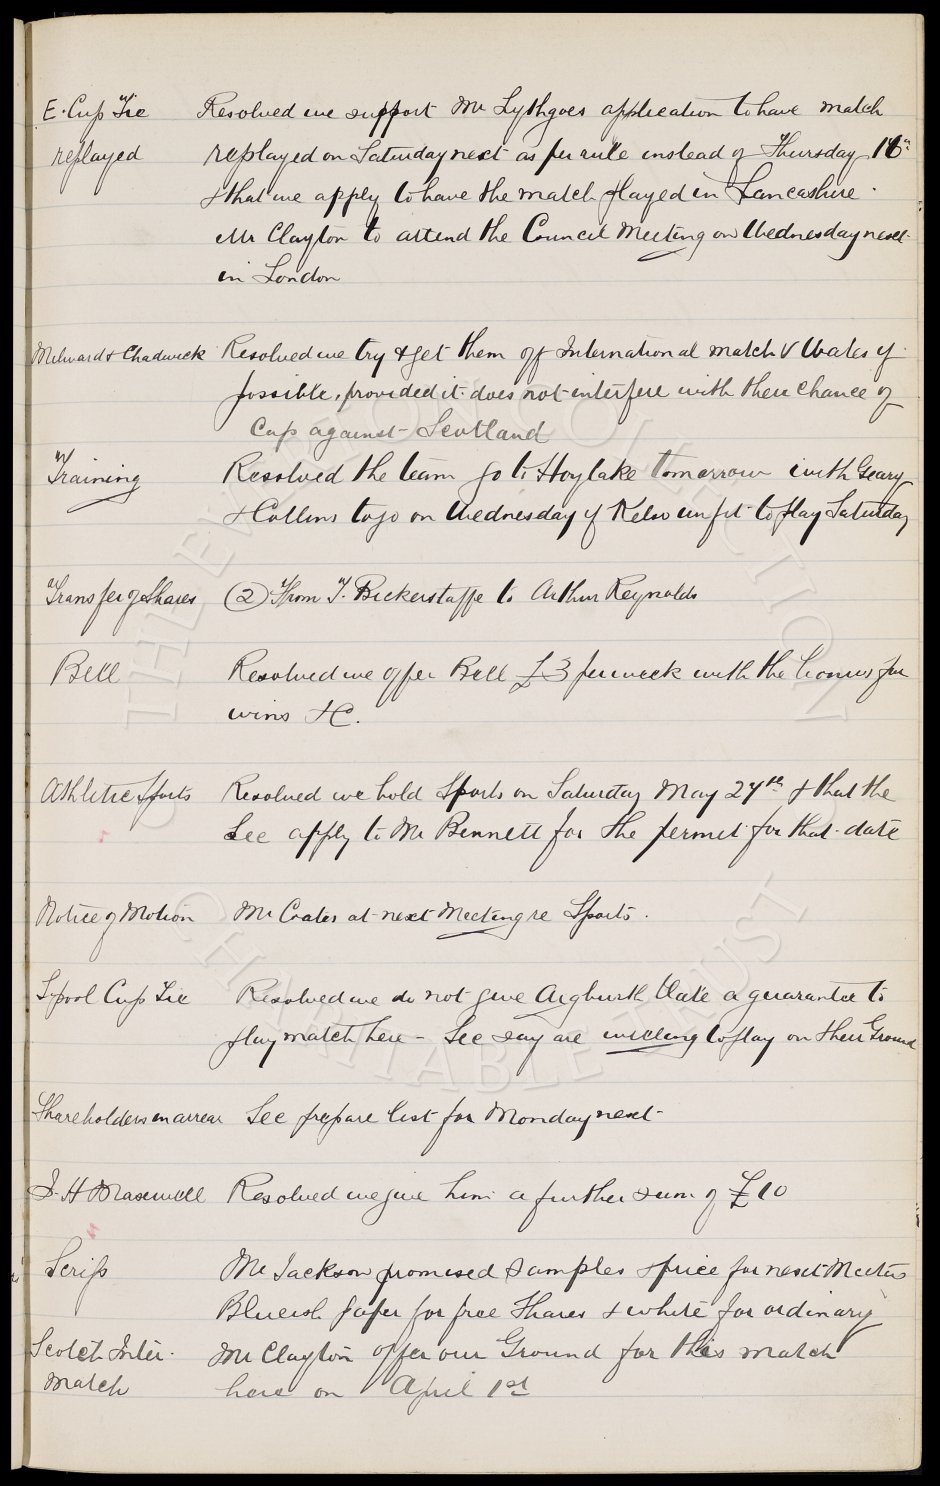 E. Cup Tie Resolved we support Mr Lythgoes application to have match
replayed replayed on Saturday next as per rule instead of Thursday 16th
& that we apply to have the match played in Lancashire.
Mr Clayton to attend the Council Meeting on Wednesday next
in London
Milward & Chadwick Resolved we try & get them off International match V Wales if
possible, provided it does not interfere with their chance of
Cap against Scotland
Training Resolved the team go to Hoylake tomorrow with Geary
& Collins to go on Wednesday if Kelso unfit to play Saturday
Transfer of Shares (2) From T. Bickerstaffe to Arthur Reynolds
Bell Resolved we offer Bell £3 per week with the bonus for
wins &c.
Athletic Sports Resolved we hold Sports on Saturday May 27th & that the
Sec apply to Mr Bennett for the permit for that date
Notice of Motion Mr Coates at next Meeting re Sports.
L'pool Cup Tie Resolved we do not give Aigburth Vale a guarantee to
play match here - Sec say are willing to play on their Ground
Shareholders in arrear Sec prepare list for Monday next
Maxwell Resolved we give him a further sum of £10
Scrip Mr Jackson promised samples & price for next Meeting
Blueish paper for free Shares & white for ordinary
Scotch Inter. Mr Clayton offer our Ground for this match
match here on April 1st
THE EVERTON COLLECTION
CHARITABLE TRUST